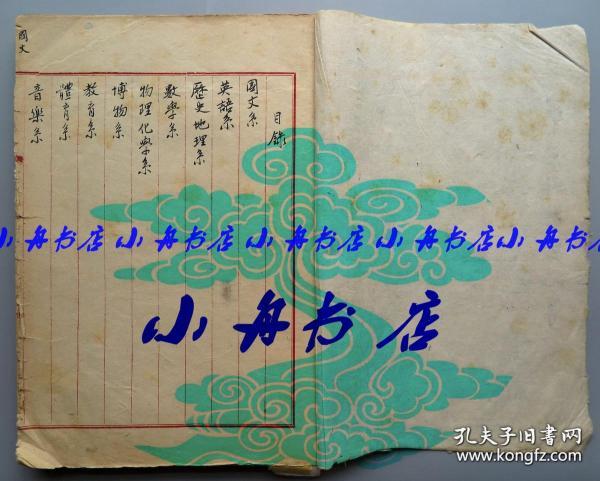 目錄
國文系
英語系
歷史地理系
數學系
物理化學系
博物系
教育系
體育系
音樂系
國文
小舟书店 小舟书店 小舟书店 小舟书店
小舟书店
孔夫子旧書网
www.kongfz.com